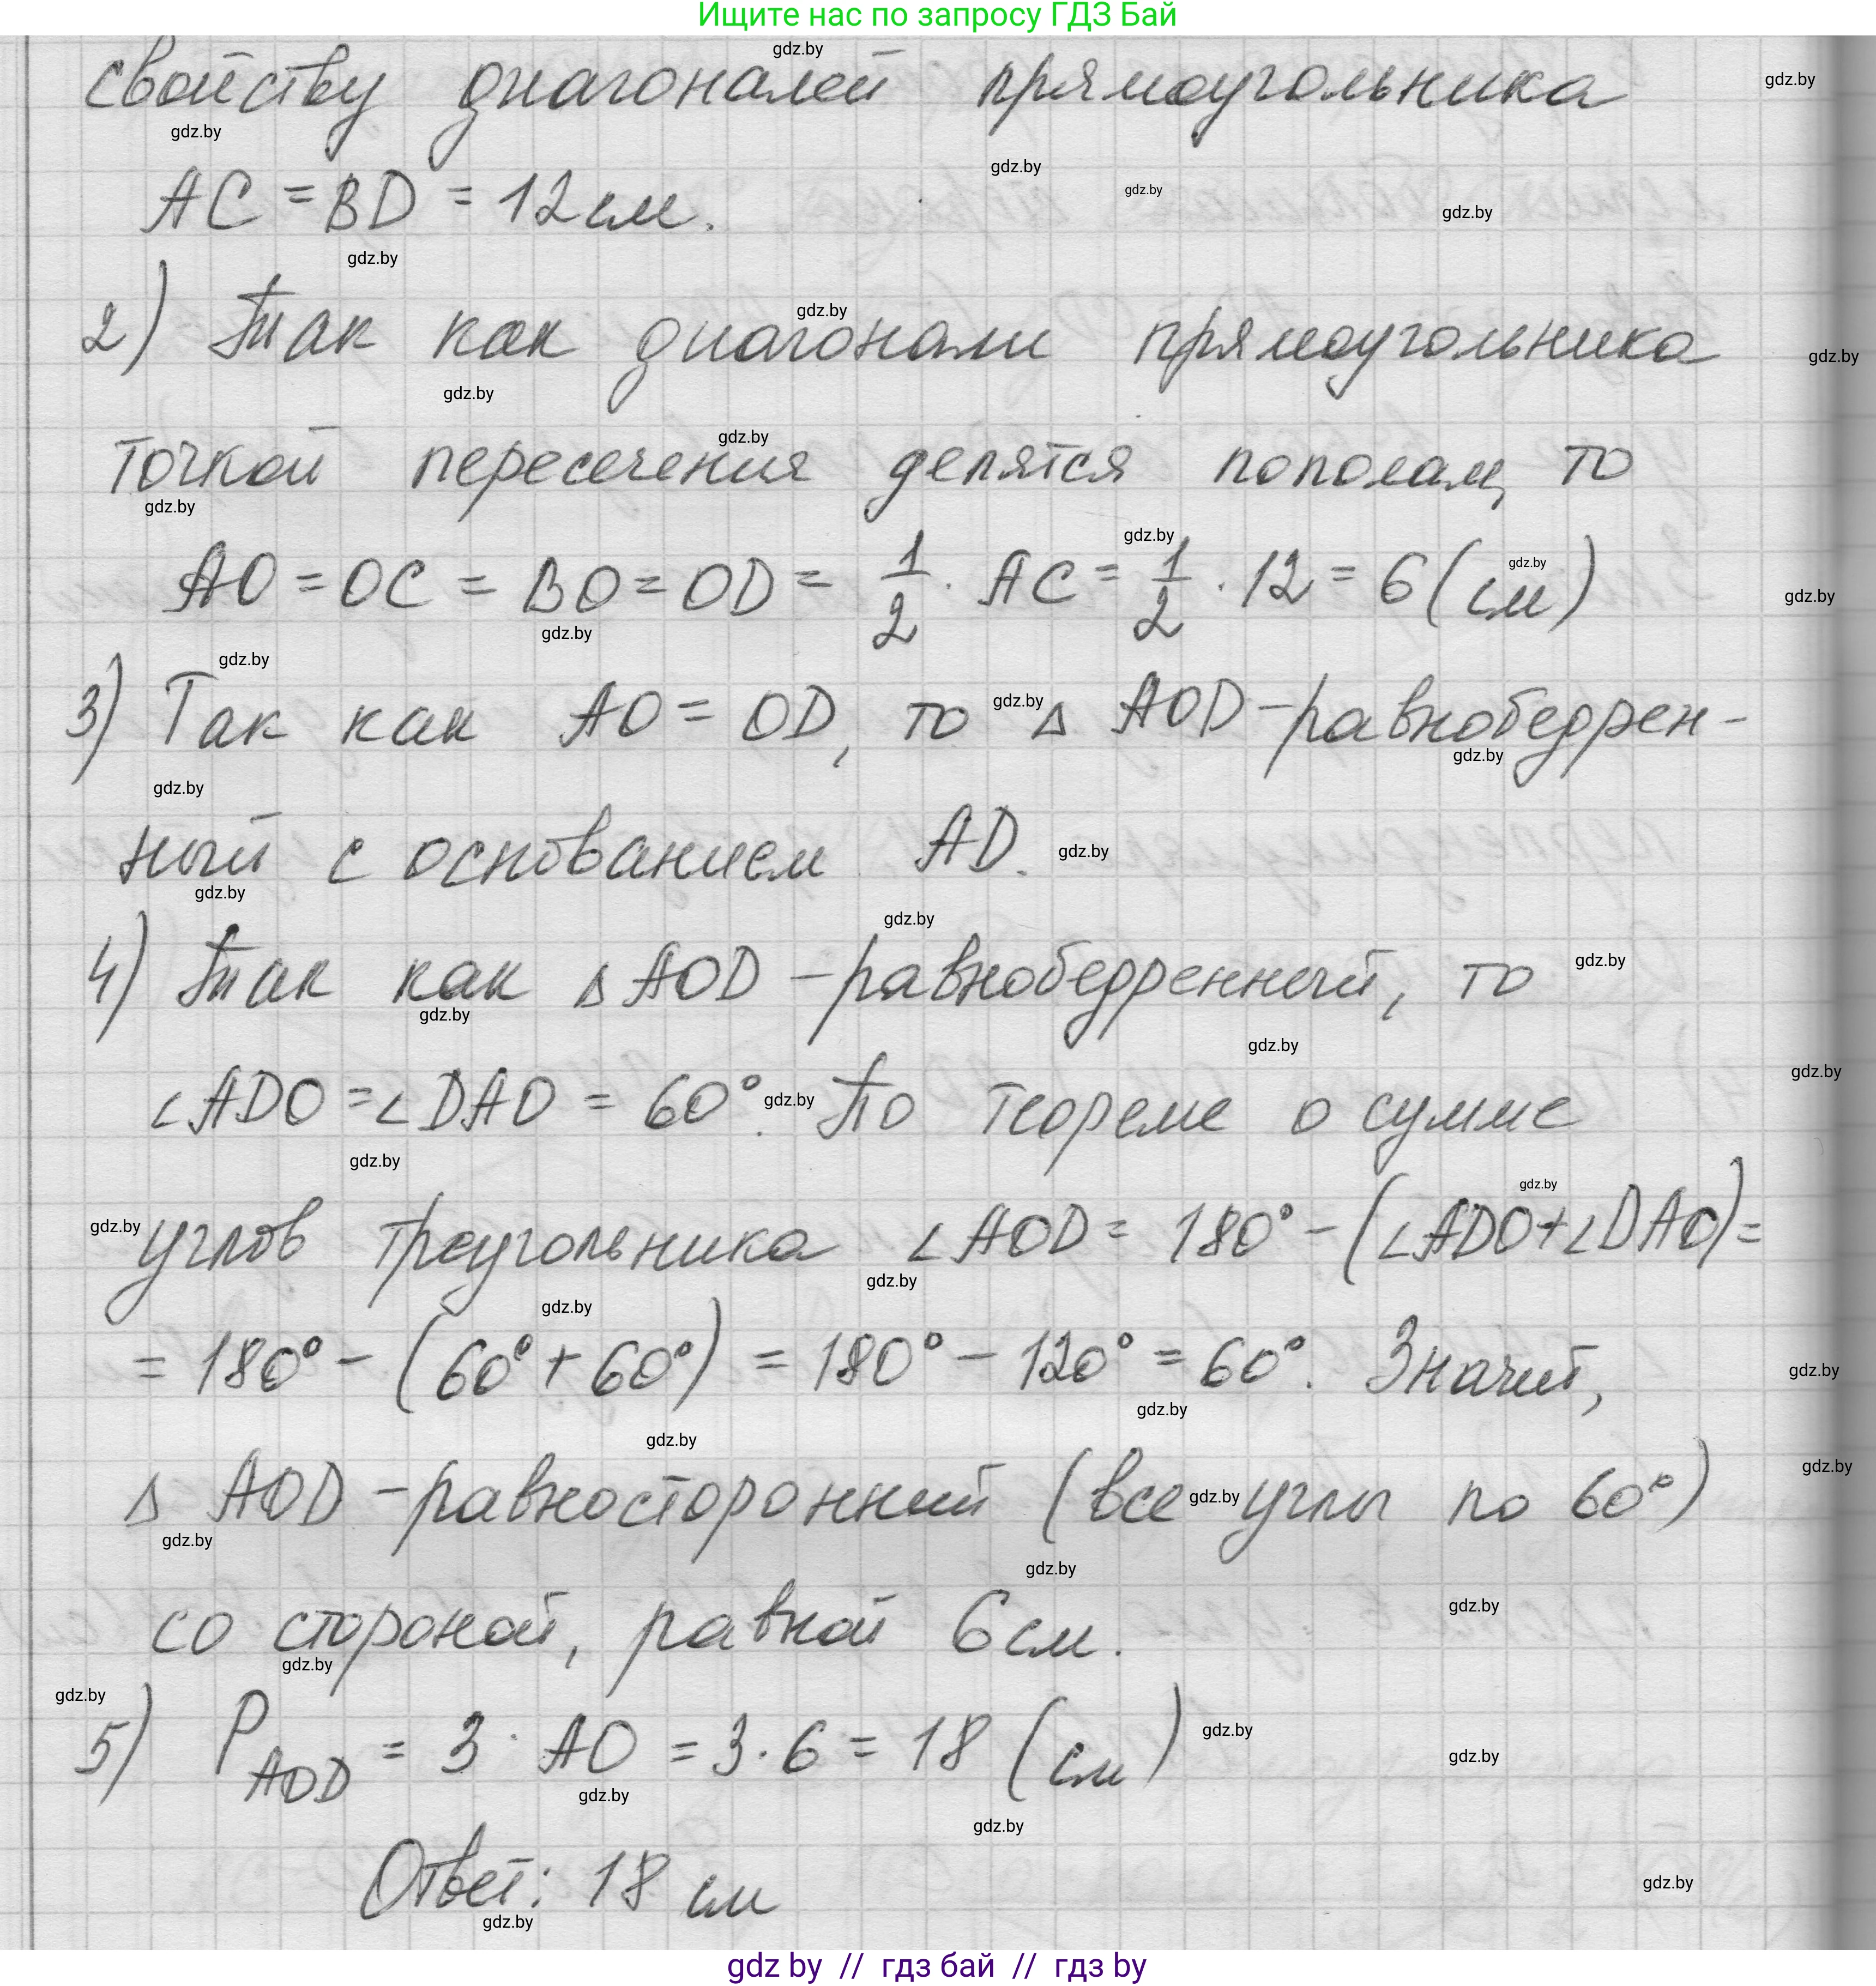 Ищите нас по запросу ГДЗ Бай
свойству диагоналей прямоугольника
AC = BD = 12 см.
2) Так как диагонали прямоугольника
точкой пересечения делятся пополам, то
AO = OC = BO = OD = 1/2 · AC = 1/2 · 12 = 6 (см)
3) Так как AO = OD, то Δ AOD - равнобедрен-
ный с основанием AD.
4) Так как Δ AOD - равнобедренный, то
∠ADO = ∠DAO = 60°. По теореме о сумме
углов треугольника ∠AOD = 180° - (∠ADO + ∠DAO) =
= 180° - (60° + 60°) = 180° - 120° = 60°. Значит,
Δ AOD - равносторонний (все углы по 60°)
со стороной, равной 6 см.
5) P AOD = 3 · AO = 3 · 6 = 18 (см)
Ответ: 18 см
gdz by // гдз бай // гдз by